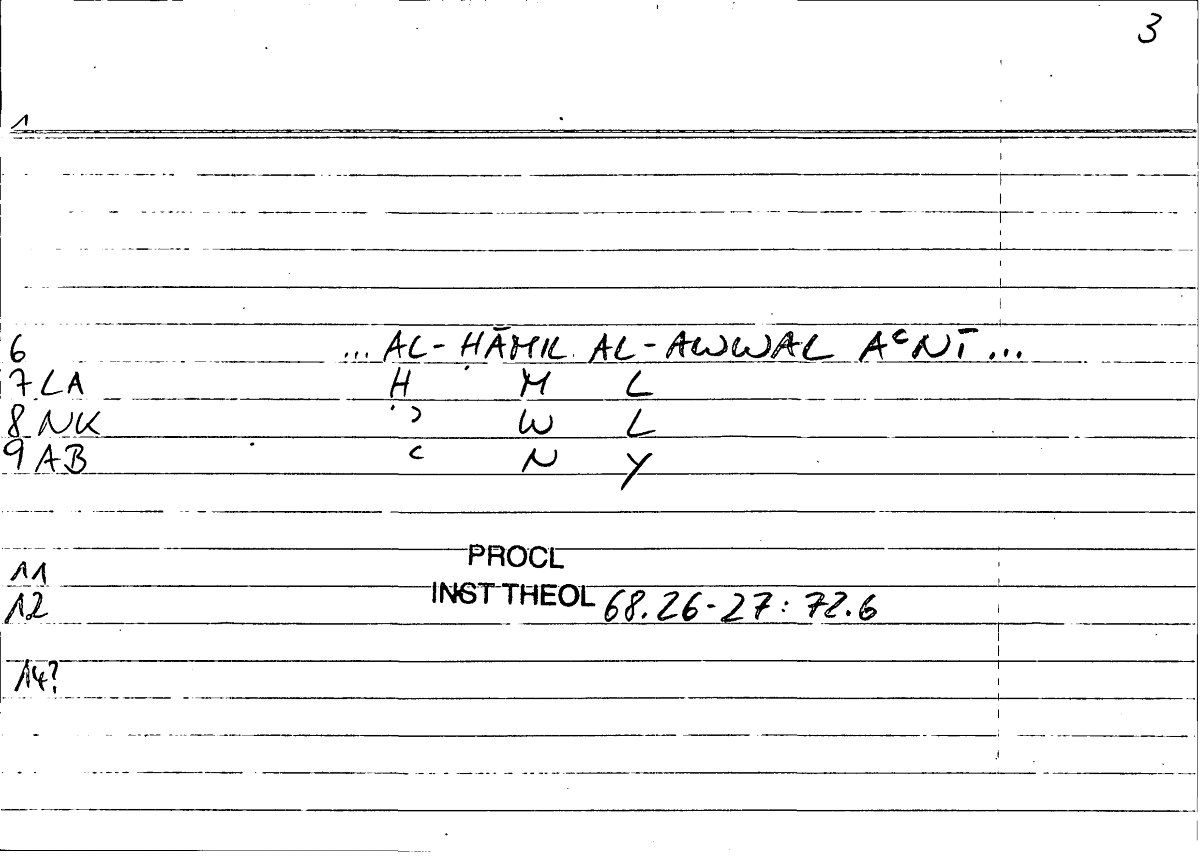 3
1
6 ... AL-ḤĀMIL AL-AWWAL AᶜNĪ ...
7 LA Ḥ M L
8 NK ʾ W L
9 AB ᶜ N Y
11 PROCL
12 INST THEOL 68.26-27: 72.6
14?